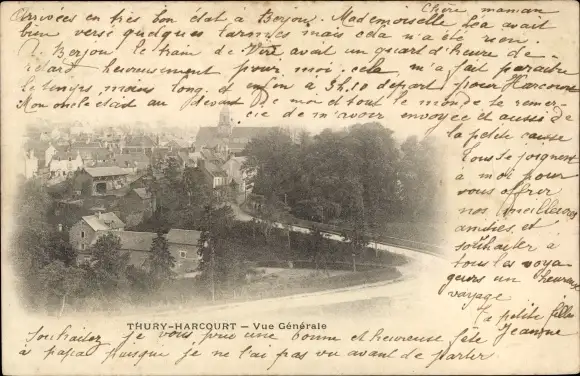 Chère maman
Arrivées en très bon état à Berjou. Mademoiselle Léa avait
bien versé quelques larmes mais cela n'a été rien.
A Berjou le train de Vire avait un quart d'heure de
retard heureusement pour moi, cela m'a fait paraître
le temps moins long, et enfin à 5h.10 départ pour Harcourt
Mon oncle était au devant de moi et tout le monde te remer-
cie de m'avoir envoyée et aussi de
la petite caisse
Tous se joignent
à moi pour
vous offrir
nos meilleures
amitiés et
souhaiter à
tous les voya
geurs un heureux
voyage
Ta petite fille
Jeanne
THURY-HARCOURT – Vue Générale
Souhaitez je vous prie une bonne et heureuse fête
à papa puisque je ne l'ai pas vu avant de partir.